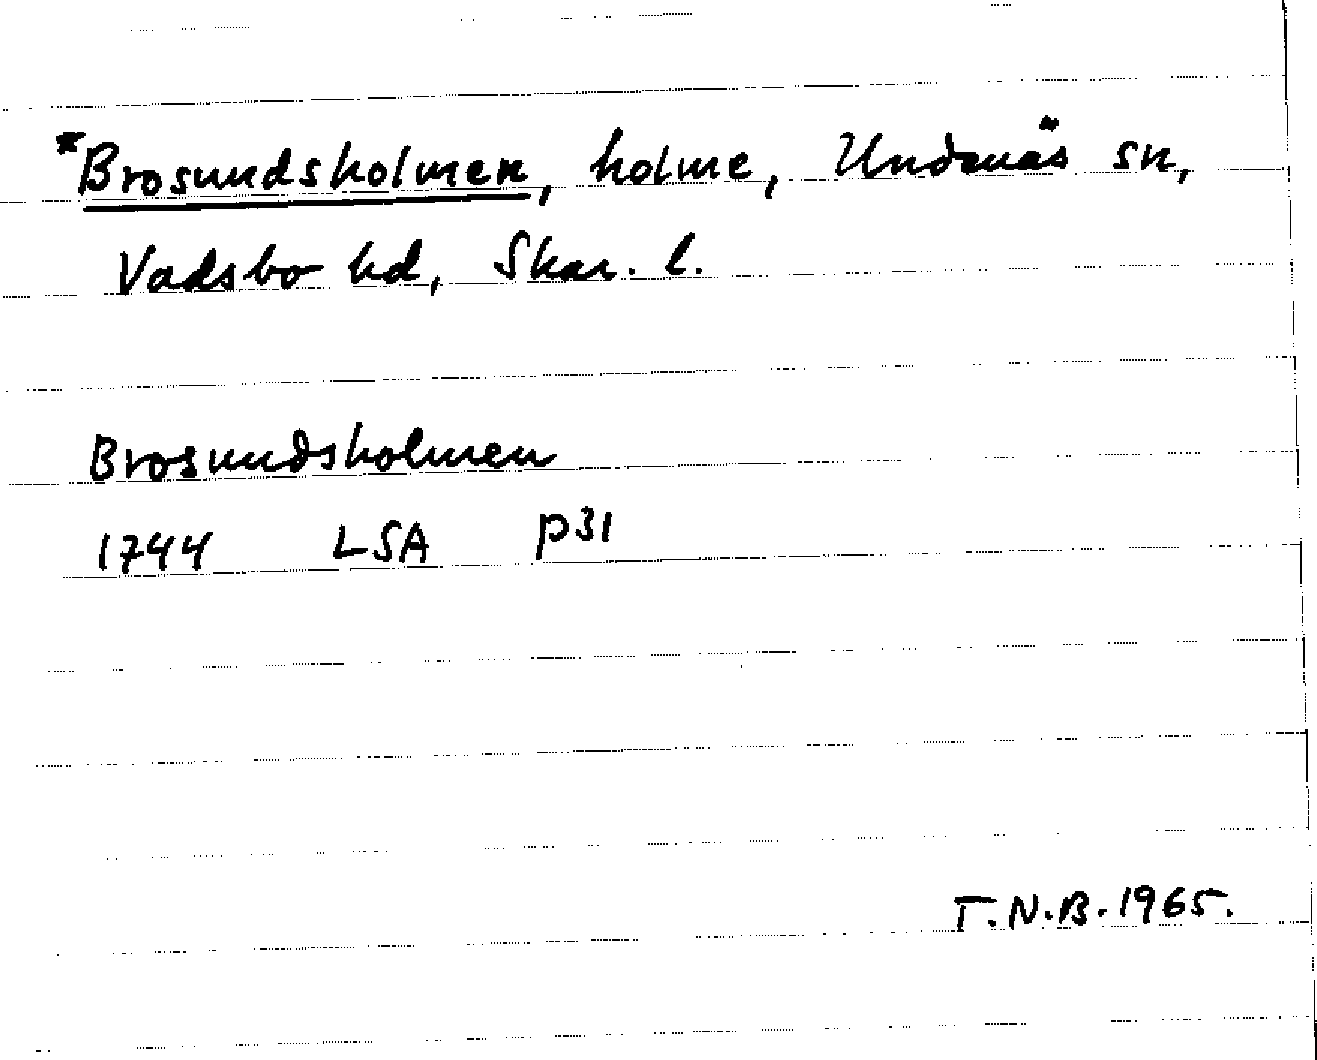 *Brosundsholmen, holme, Undenäs sn,
Vadsbo hd, Skar. l.
Brosundsholmen
1744 LSA P31
T.N.B. 1965.